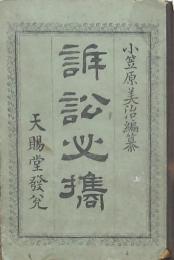 小笠原美治編纂
訴訟必携
天賜堂發兌